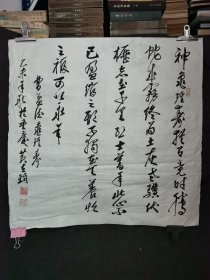 神龜雖壽猶有竟時騰
蛇乘霧終為土灰老驥伏
櫪志在千里烈士暮年壯心不
已盈縮之期不獨在天養怡
之福可以永年
曹孟德龜雖壽
乙未年秋於